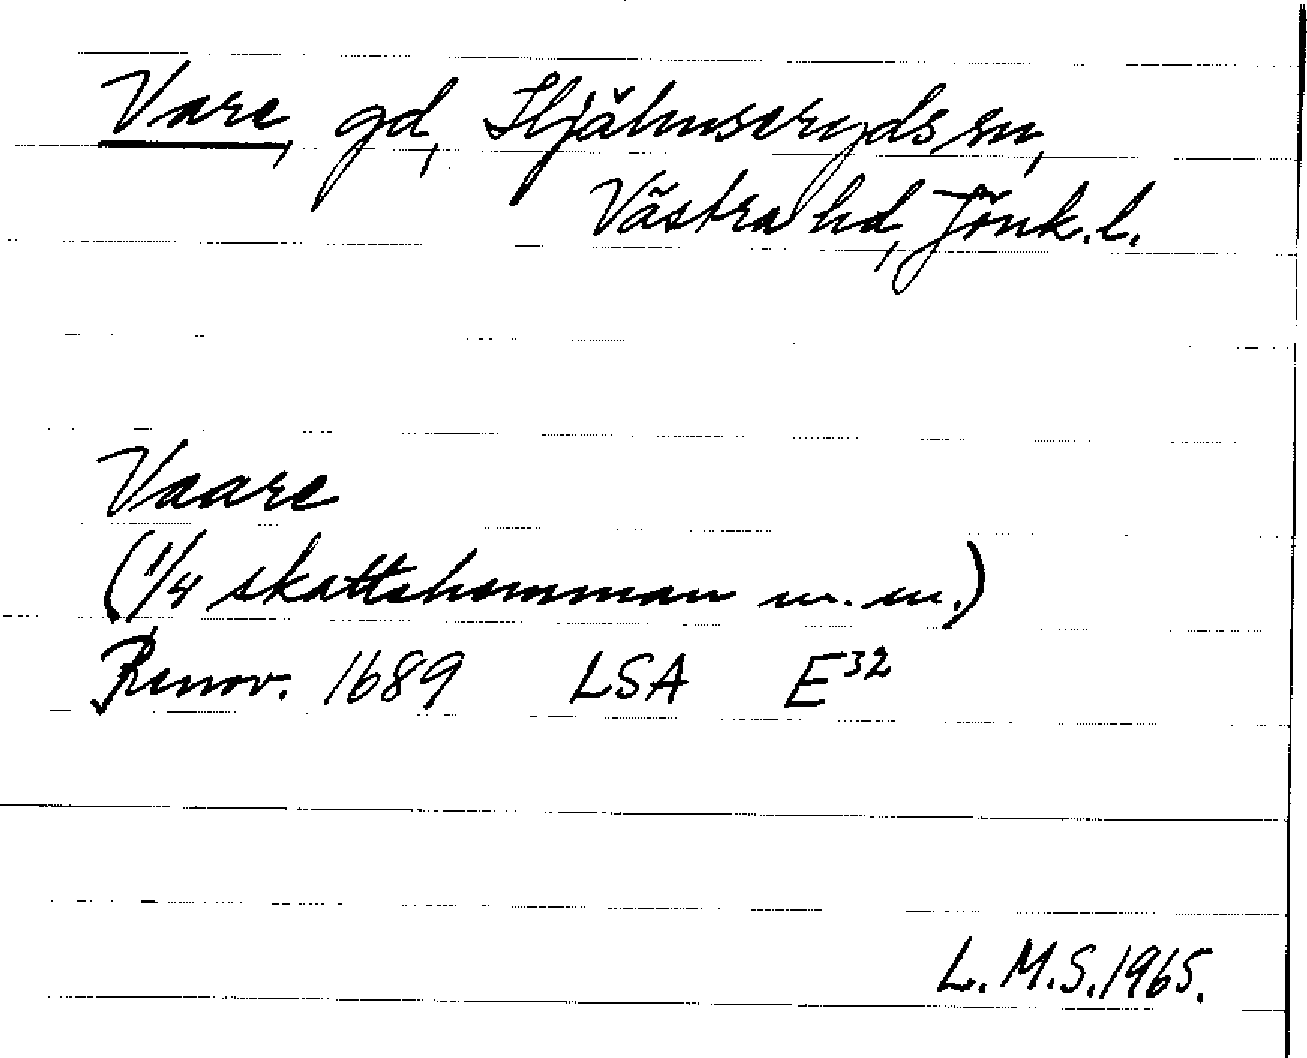 Vare, gd, Hjälmseryds sn,
Västra hd, Jönk. l.
Vaare
(1/4 skattehemman m. m.)
Renov. 1689 LSA E32
L. M. S. 1965.